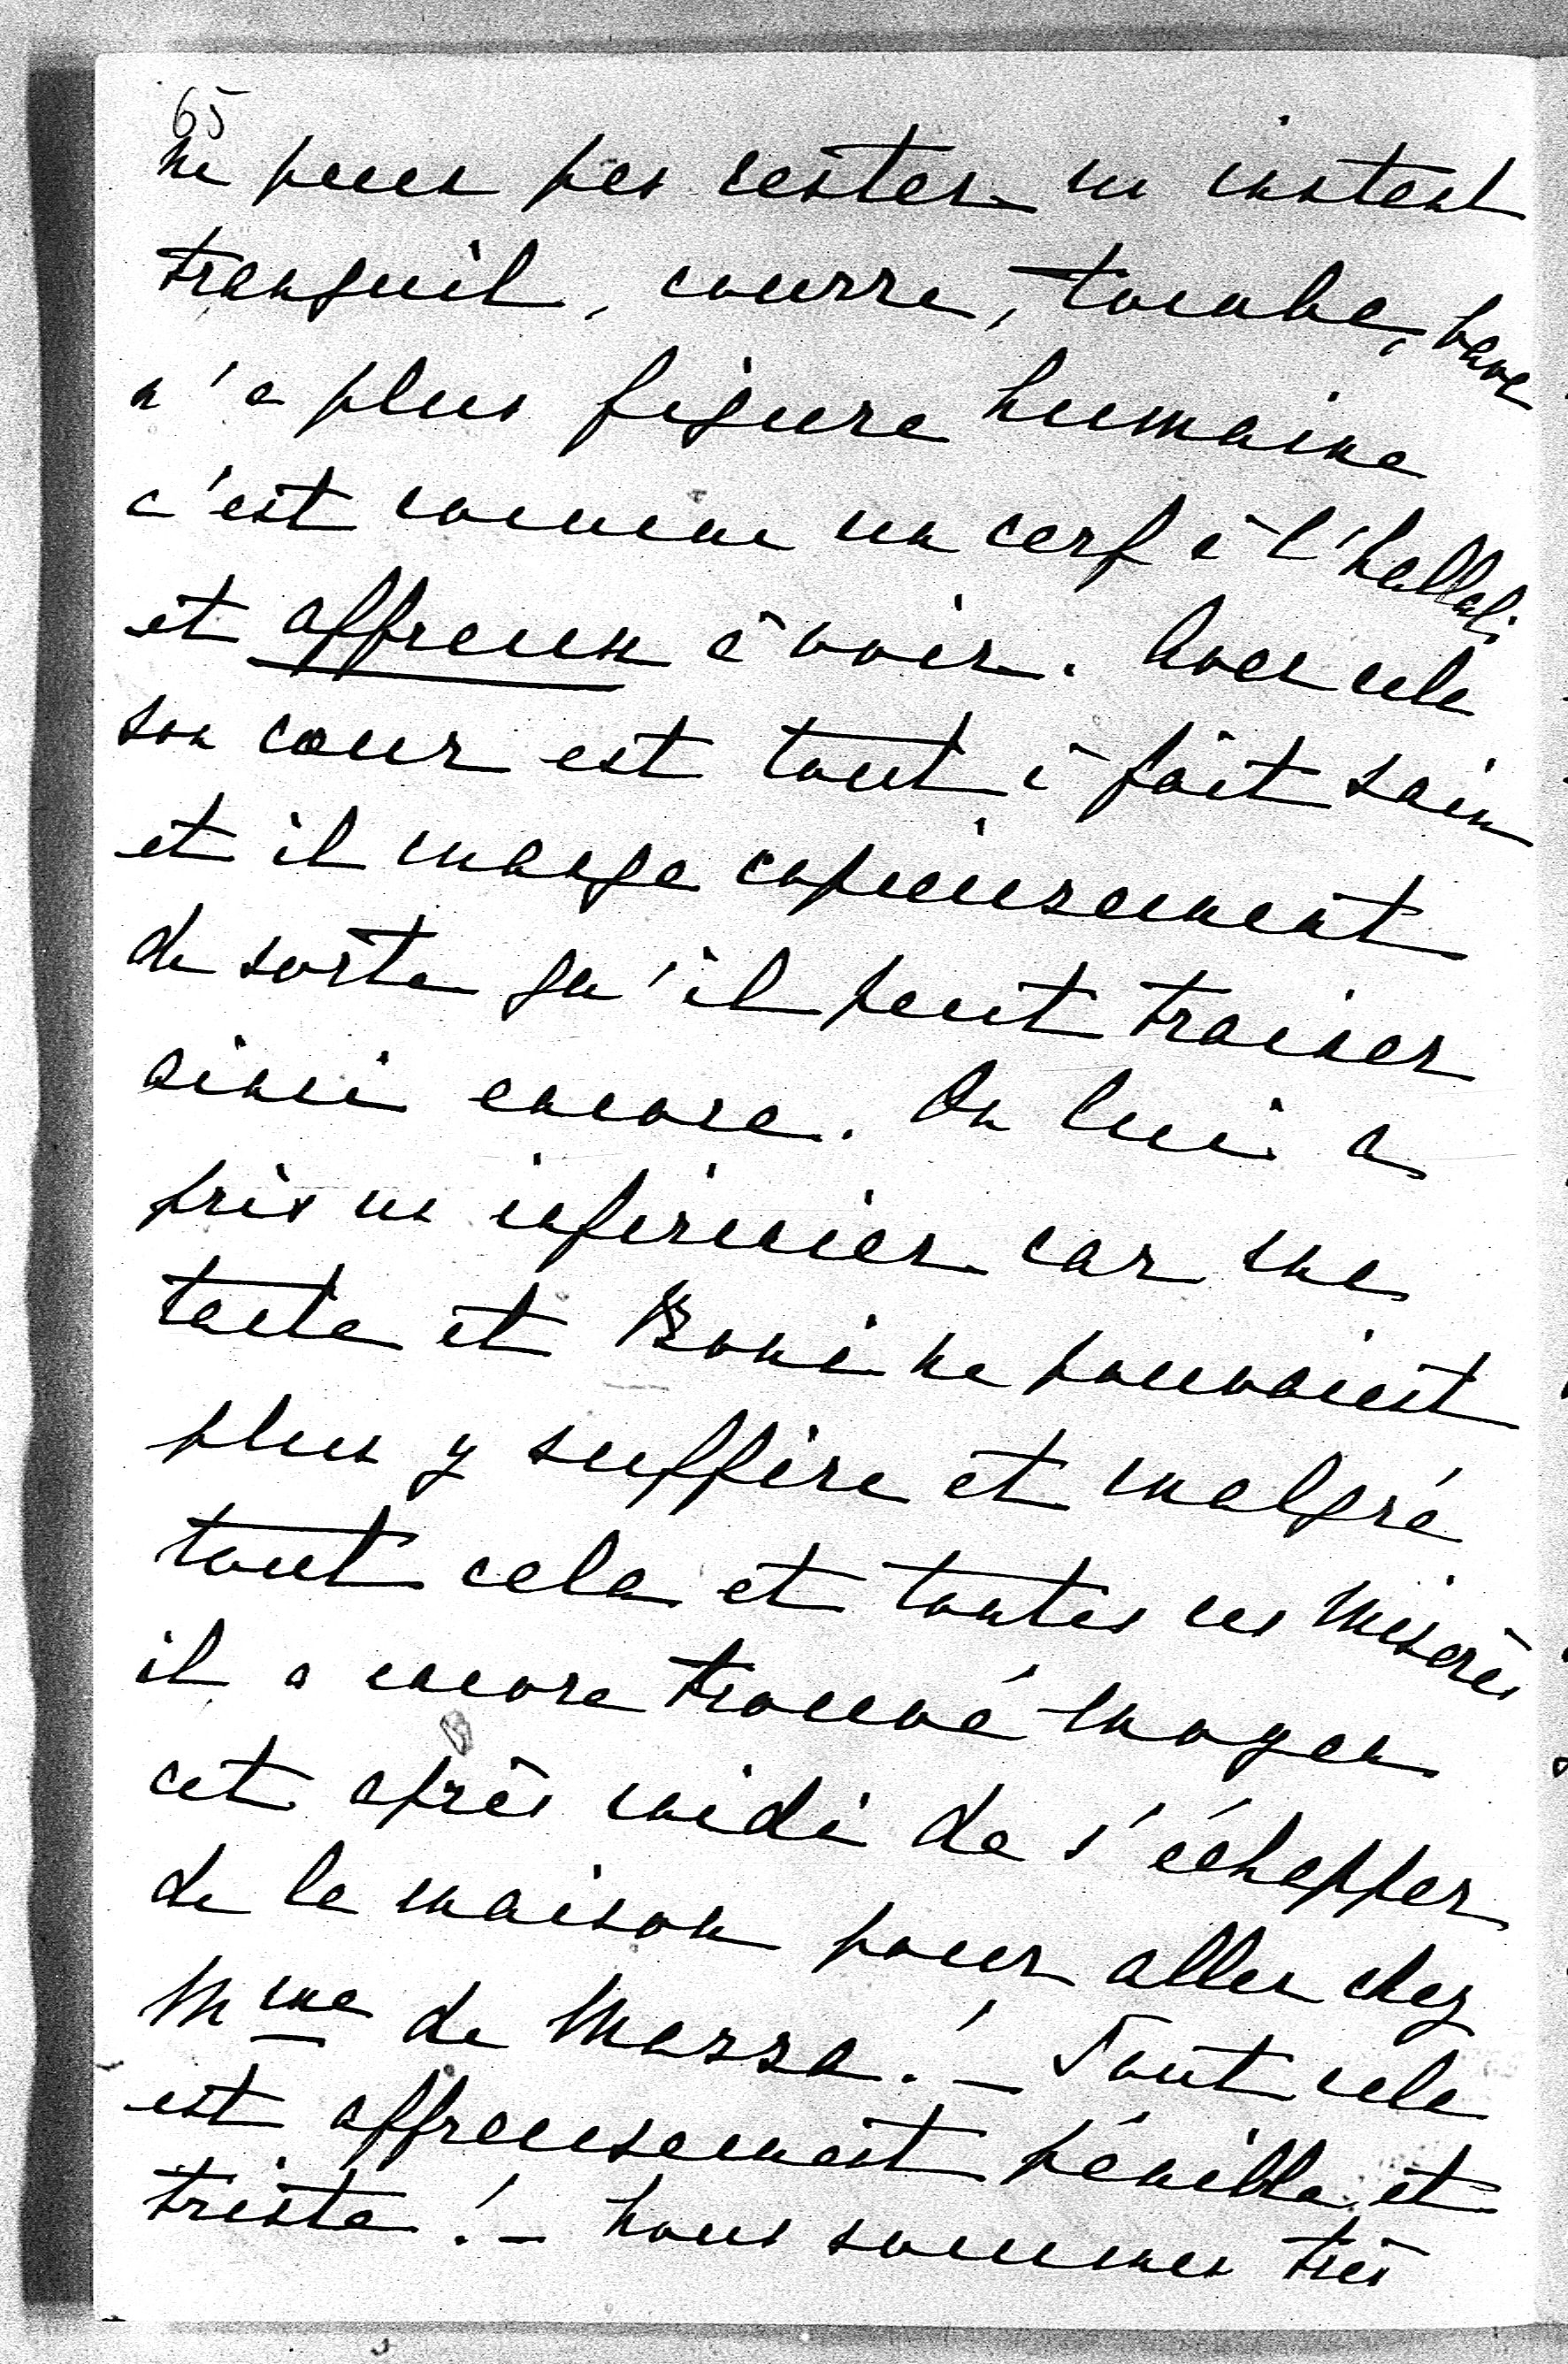 65
ne peux pas rester un instant
tranquil, courre, tombe, bave
n'a plus figure humaine
c'est comme un cerf à l'hallali
et affreux à voir. Avec cela
son cœur est tout à fait sain
et il mange copieusement
de sorte qu'il peut trainer
ainsi encore. On lui a
pris un infirmier car ma
tante et Boni ne pouvaient
plus y suffire et malgré
tout cela et toutes ces misères
il a encore trouvé moyen
cet après midi de s'échapper
de la maison pour aller chez
Mme de Massa. — Tout cela
est affreusement pénible et
triste ! — Nous sommes très